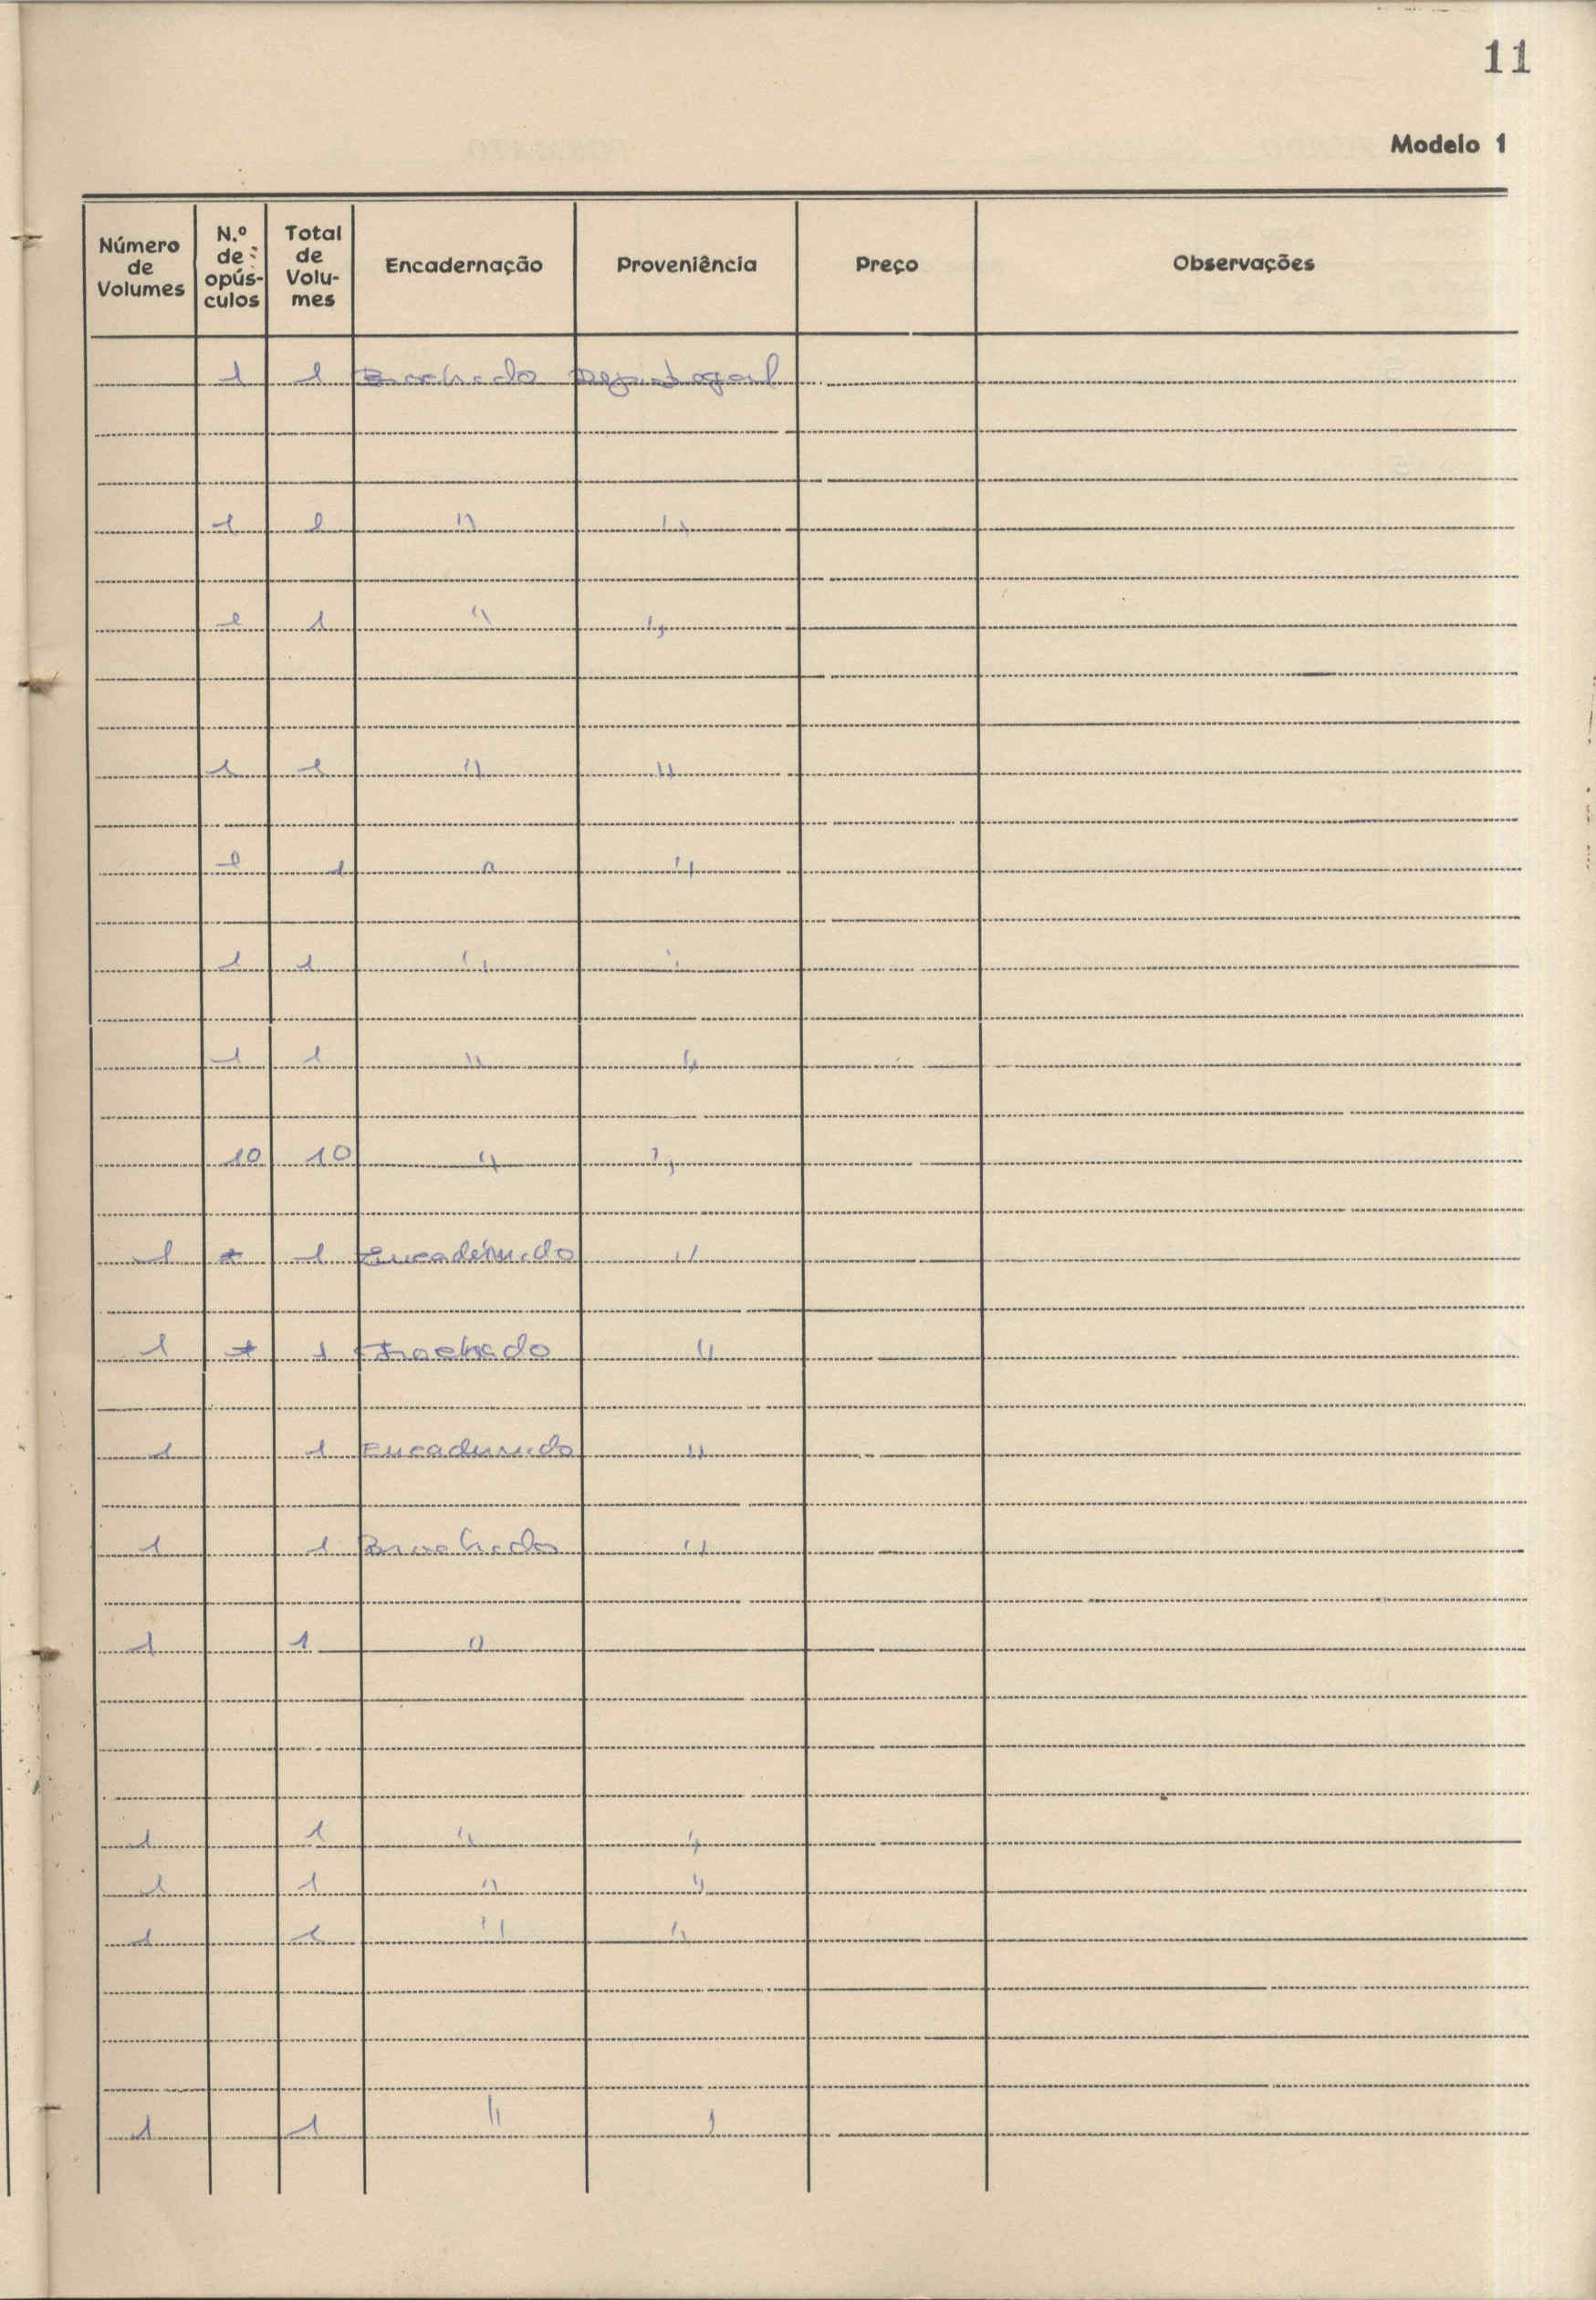 11
Modelo 1
Número de Volumes N.º de opús-culos Total de Volu-mes Encadernação Proveniência Preço Observações
1 1 Brochado Dep. Legal
1 1 " "
1 1 " "
1 1 " "
1 1 " "
1 1 " "
1 1 " "
10 10 " "
1 * 1 Encadernado "
1 * 1 Brochado "
1 1 Encadernado "
1 1 Brochado "
1 1 "
1 1 " "
1 1 " "
1 1 " "
1 1 " "